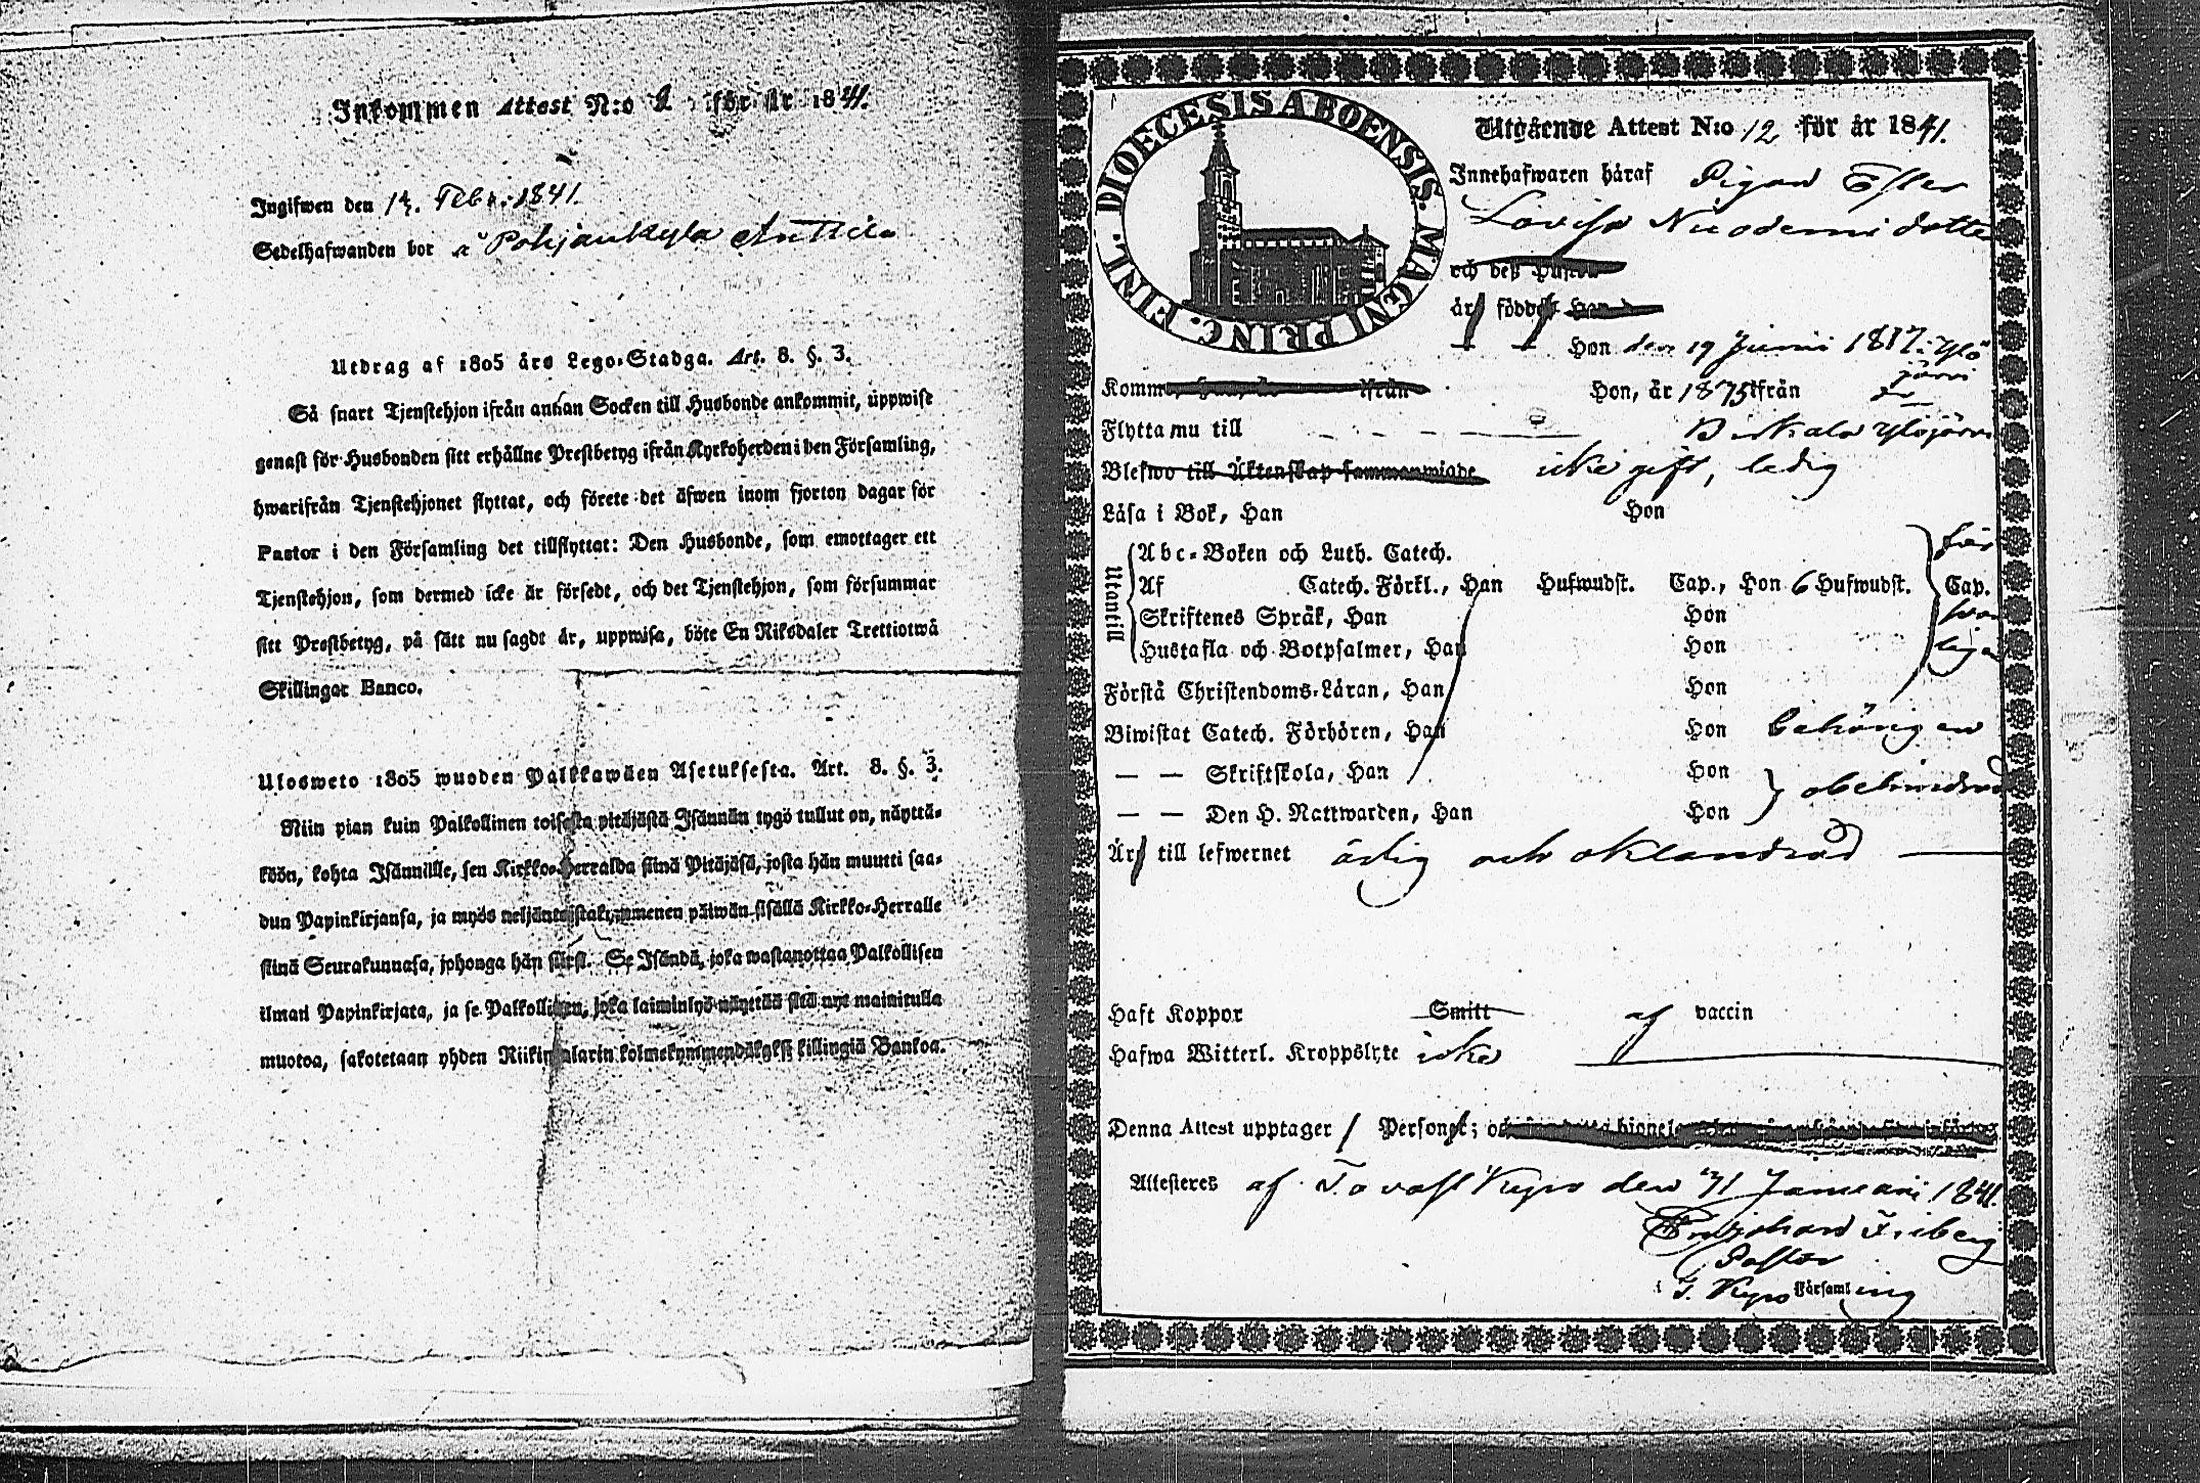 Inkommen Attest N:o 2 för år 1841.
Ingifwen den 14. Febr. 1841.
Sedelhafwanden bor å Pohjankylä Anttila
Utdrag af 1805 års Lego-Stadga. Art. 8. §. 3.
Så snart Tjenstehjon ifrån annan Socken till Husbonde ankommit, uppwise
genast för Husbonden sitt erhållne Prestbetyg ifrån Kyrkoherden i den Församling,
hwarifrån Tjenstehjonet flyttat, och förete det äfwen inom fjorton dagar för
Pastor i den Församling det tillflyttat: Den Husbonde, som emottager ett
Tjenstehjon, som dermed icke är försedt, och det Tjenstehjon, som försummar
sitt Prestbetyg, på sätt nu sagdt är, uppwisa, böte En Riksdaler Trettiotwå
Skillingar Banco.
Ulosweto 1805 wuoden Palkkawäen Asetuksesta. Art. 8. §. 3.
Niin pian kuin Palkollinen toisesta pitäjästä Isännän tygö tullut on, näyttä-
köön, kohta Isännille, sen Kirkko-Herralda siinä Pitäjäsä, josta hän muutti saa-
dun Papinkirjansa, ja myös neljäntoistakymmenen päiwän sisällä Kirkko-Herralle
siinä Seurakunnasa, johonga hän siirsi. Se Isändä, joka wastanottaa Palkollisen
ilman Papinkirjata, ja se Palkollinen, joka laiminlyö näyttää sitä nyt mainitulla
muotoa, sakotetaan yhden Riikintalarin kolmekymmendäkaksi killingiä Bankoa.
DIOECESIS ABOENSIS. MAGNI PRINC. FINL.
Utgående Attest N:o 12 för år 1841.
Innehafwaren häraf Pigan Ester
Lovisa Nicodemi dotter
och deß Hustru
är födde Han
— — Hon den 19 Junii 1817. Ylö
järvi
Komne, ifrån Hon, år 1875 ifrån
Flytta nu till Birkala Ylöjärvi
Blefwo till Äktenskap sammanwigde icke gift, ledig
Läsa i Bok, Han Hon
Utantill
Abc-Boken och Luth. Catech.
Af Catech. Förkl., Han Hufwudst. Cap., Hon 6 Hufwudst. Cap.
Skriftenes Språk, Han Hon
Hustafla och Botpsalmer, Han Hon
Förstå Christendoms-Läran, Han Hon
Biwistat Catech. Förhören, Han Hon behörigen
— — Skriftskola, Han Hon
— — Den H. Nattwarden, Han Hon obehindrad
Är till lefwernet ärlig och oklandrad
Haft Koppor Smitt af vaccin
Hafwa Witterl. Kroppslyte icke
Denna Attest upptager 1 Person;
Attesteres af Tavast Kyro den 31 Januarii 1841.
Friberg
Pastor
i T. Kyro Församling